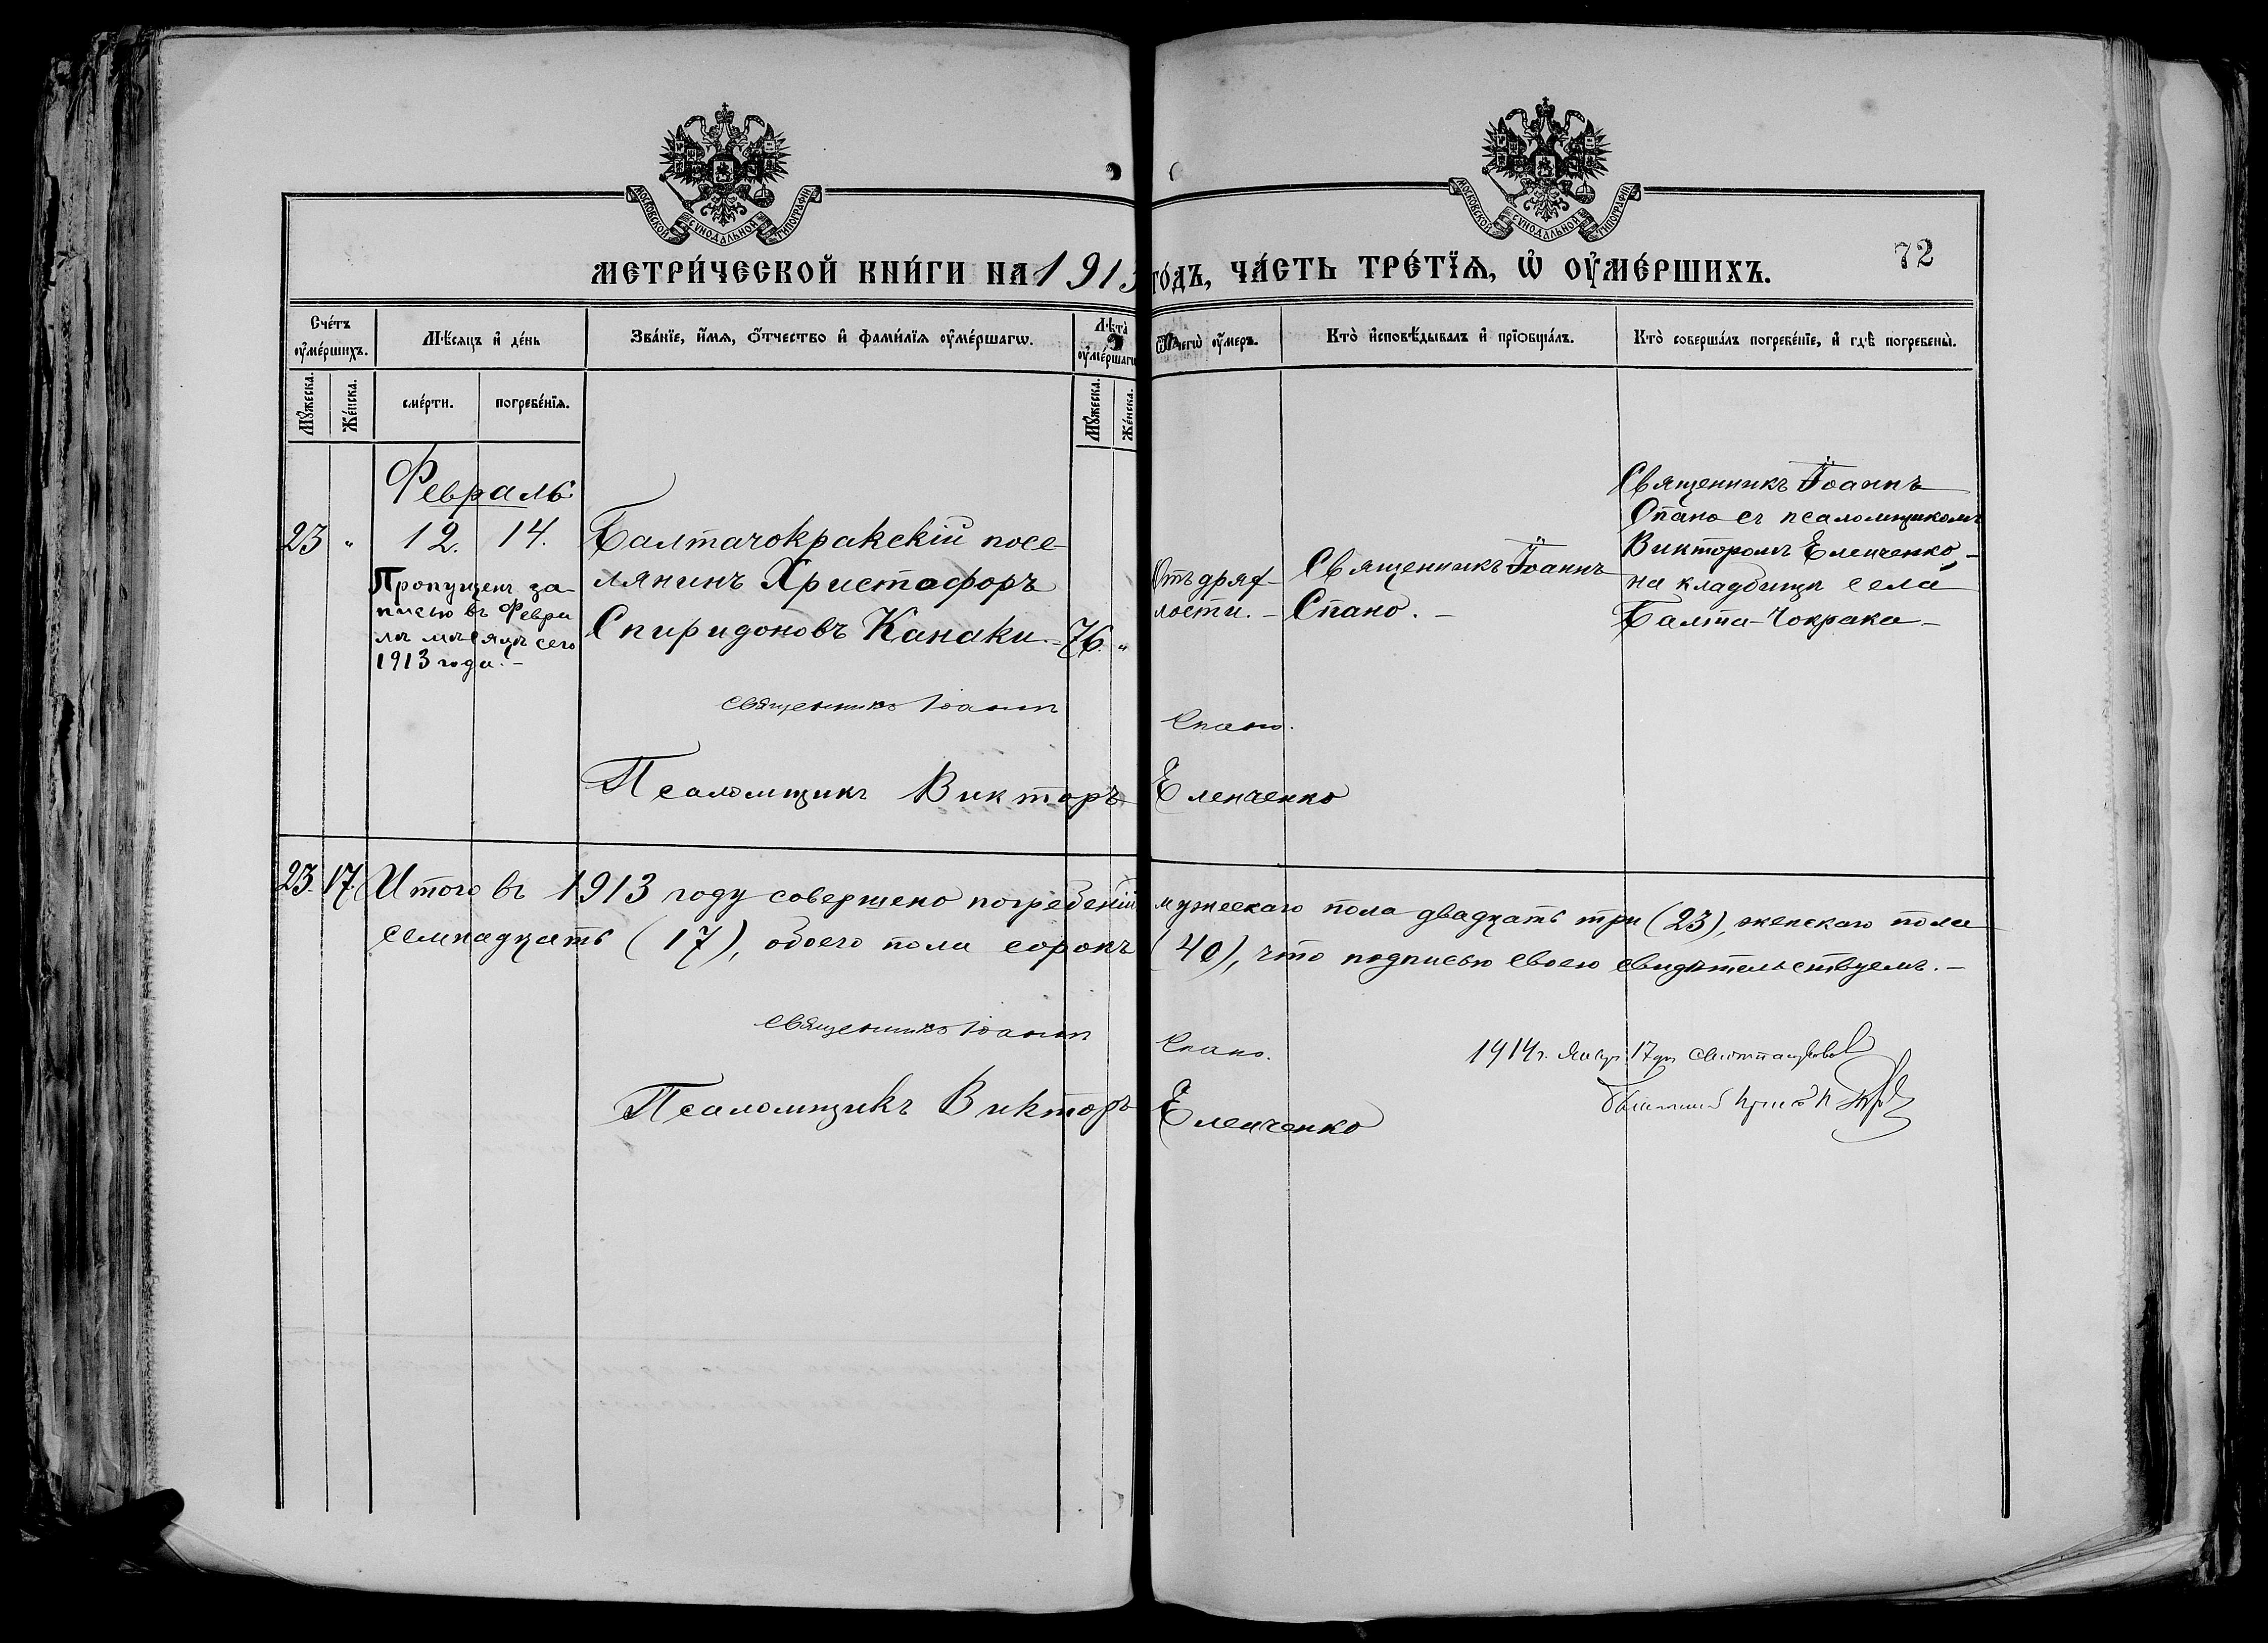 МОСКОВСКОЙ СѴНОДАЛЬНОЙ ТИПОГРАФІИ
МОСКОВСКОЙ СѴНОДАЛЬНОЙ ТИПОГРАФІИ
72
МЕТРИ́ЧЕСКОЙ КНИ́ГИ НА 1913 го́дъ, ЧА́СТЬ ТРЕ́ТЇѦ, Ѡ҆ ОУ҆МЕ́РШИХЪ.
Сче́тъ оу҆ме́ршихъ.
Мѣ́сяцъ и҆ де́нь
Зва́нїе, и҆́мѧ, ѻ҆́тчество и҆ фами́лїѧ оу҆ме́ршагѡ.
Лѣ́та оу҆ме́ршагѡ
Ѿ чегѡ̀ оу҆́меръ.
Кто̀ и҆сповѣ́дывалъ и҆ прїѡбща́лъ.
Кто̀ соверша́лъ погребе́нїе, и҆ гдѣ̀ погребены̀.
Мꙋ́жеска.
Же́нска.
сме́рти.
погребе́нїѧ.
Мꙋ́жеска.
Же́нска.
Февраль
23 " 12. 14.
Пропущенъ за-
писью въ Февра
лѣ мѣсяцѣ сего
1913 года. –
Балтачокракскій посе-
лянинъ Христофоръ
Спиридоновъ Канаки. – 76. "
Отъ дрях-
лости. –
Священникъ Іоаннъ
Спано. –
Священникъ Іоаннъ
Спано съ псаломщикомъ
Викторомъ Еленченко –
на кладбищѣ села
Балта-Чокрака –
Священникъ Іоаннъ Спано.
Псаломщикъ Викторъ Еленченко
23. 17. Итого въ 1913 году совершено погребеній мужескаго пола двадцать три (23), женскаго пола
семнадцать (17), обоего пола сорокъ (40), что подписью своею свидѣтельствуемъ. –
Священникъ Іоаннъ Спано.
Псаломщикъ Викторъ Еленченко
1914 г. Янв. 17 дня